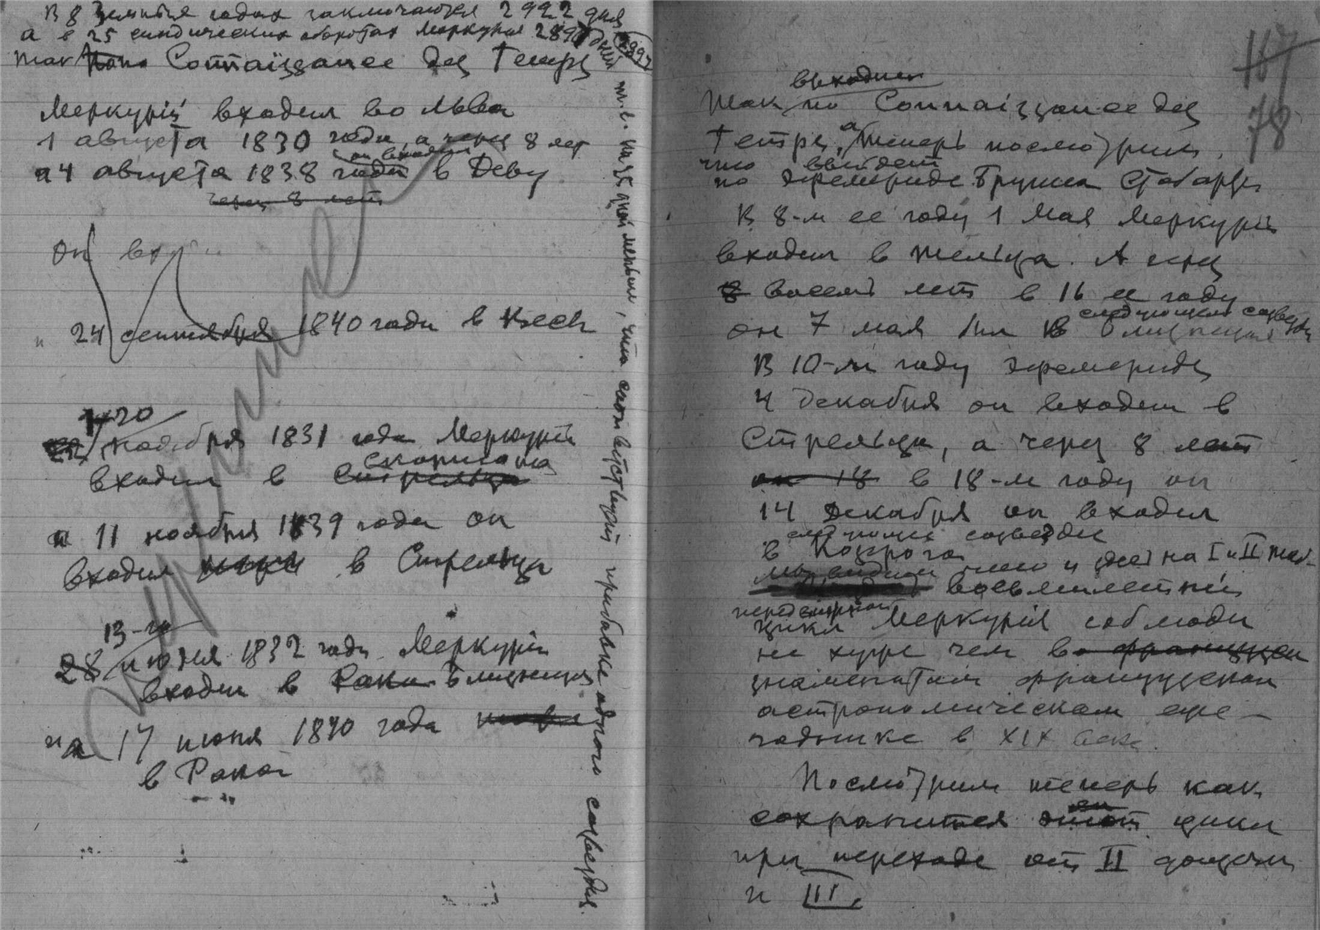 В 8 земных годах заключается 2922 дня
а в 25 синодических оборотах Меркурия 2897 дней 2897
так Connaissance des Temps
Меркурий входил во Льва
1 августа 1830 года, а через 8 лет
и 4 августа 1838 года он входил в Деву
через 8 лет
Он
24 сентября 1840 года в Весы
20
ноября 1831 года Меркурий
Скорпиона
входил в Стрельца
и 11 ноября 1839 года он
входил в Стрельца
13-го
28 июня 1832 года Меркурий
входил в Рака Близнецы
и 17 июня 1840 года
в Рака
т.е. на 25 дней меньше, что соответствует прибавке одного созвездия.
167
78
выходит
Так по Connaissance des
Temps, а теперь посмотрим,
что выйдет
по эфемериде Бругша Стобарта
В 8-м ее году 1 мая Меркурий
входил в Тельца. А через
8 восемь лет в 16 ее году
следующее созвездие
он 7 мая был в Близнецах
В 10-м году эфемериды
4 декабря он входил в
Стрельца, а через 8 лет
он 18 в 18-м году он
14 декабря он входил
следующее созвездие
в Козерога
мы видим на I и II
восьмилетний
цикл Меркурия соблюден
не хуже чем во французском
знаменитом французском
астрономическом еже-
годнике в XIX веке.
Посмотрим теперь как
сохранится этот цикл
при переходе от II дощечки
к III.